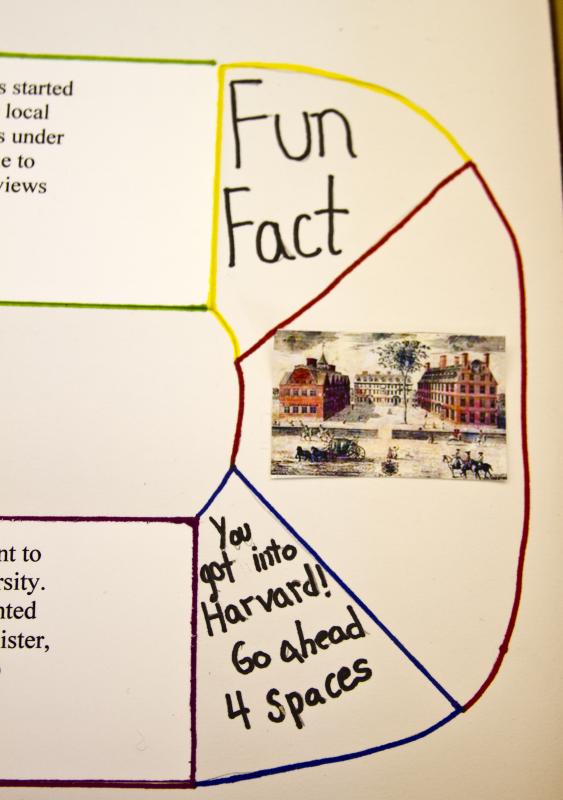 s started
local
s under
e to
views
Fun
Fact
You
got into
Harvard!
Go ahead
4 Spaces
nt to
rsity.
nted
ister,